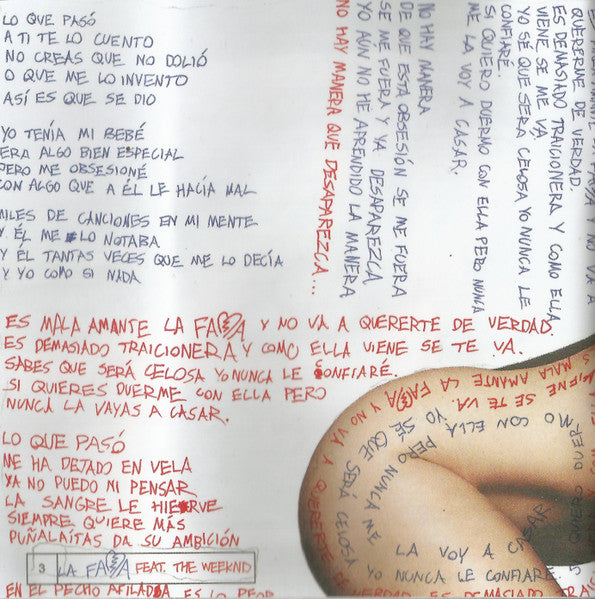 LO QUE PASÓ
A TI TE LO CUENTO
NO CREAS QUE NO DOLIÓ
O QUE ME LO INVENTO
ASÍ ES QUE SE DIO
YO TENÍA MI BEBÉ
ERA ALGO BIEN ESPECIAL
PERO ME OBSESIONÉ
CON ALGO QUE A ÉL LE HACÍA MAL
MILES DE CANCIONES EN MI MENTE
Y ÉL ME LO NOTABA
Y ÉL TANTAS VECES QUE ME LO DECÍA
Y YO COMO SI NADA
QUERERME DE VERDAD.
ES DEMASIADO TRAICIONERA Y COMO ELLA
VIENE SE ME VA.
YO SÉ QUE SERÁ CELOSA YO NUNCA LE
CONFIARÉ.
SI QUIERO DUERMO CON ELLA PERO NUNCA
ME LA VOY A CASAR.
NO HAY MANERA
DE QUE ESTA OBSESIÓN SE ME FUERA
SE ME FUERA Y YA DESAPAREZCA
YO AÚN NO ME APRENDIDO LA MANERA
NO HAY MANERA QUE DESAPAREZCA...
ES MALA AMANTE LA FAMA Y NO VA A QUERERTE DE VERDAD.
ES DEMASIADO TRAICIONERA Y COMO ELLA VIENE SE TE VA.
SABES QUE SERÁ CELOSA YO NUNCA LE CONFIARÉ.
SI QUIERES DUERME CON ELLA PERO
NUNCA LA VAYAS A CASAR.
LO QUE PASÓ
ME HA DEJADO EN VELA
YA NO PUEDO NI PENSAR
LA SANGRE LE HIERVE
SIEMPRE QUIERE MÁS
PUÑALAÍTAS DA SU AMBICIÓN
3 LA FAMA FEAT. THE WEEKND
EN EL PECHO AFILADA ES LO PEOR
S MALA AMANTE LA FAMA Y NO VA A QUERERTE DE VERDAD. ES DEMASIADO TRAICIONERA
VIENE SE TE VA.
YO SÉ QUE SERÁ CELOSA YO NUNCA LE CONFIARÉ.
SI QUIERO DUERMO CON ELLA, PERO NUNCA ME
LA VOY A CASAR